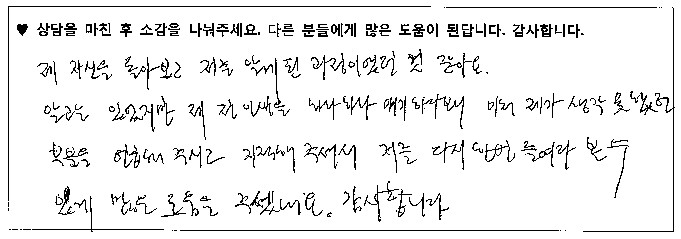 ♥ 상담을 마친 후 소감을 나눠주세요. 다른 분들에게 많은 도움이 된답니다. 감사합니다.
제 자신을 돌아보고 저를 알게된 과정이었던 것 같아요.
알고는 있었지만 제 전 인생을 하나하나 얘기하다보니 미처 제가 생각 못했던
부분을 말씀해 주시고 지적해 주셔서 저를 다시 한번 돌여다 볼 수
있게 많은 도움을 주셨네요. 감사합니다